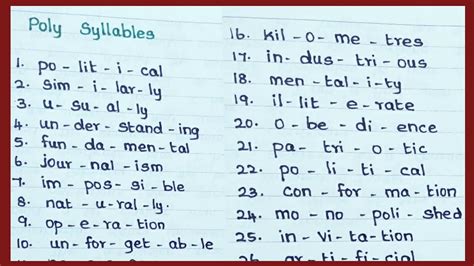 Poly Syllables
1. po - lit - i - cal
2. sim - i - lar - ly
3. u - su - al - ly
4. un - der - stand - ing
5. fun - da - men - tal
6. jour - nal - ism
7. im - pos - si - ble
8. nat - u - ral - ly.
9. op - e - ra - tion
10. un - for - get - ab - le
16. kil - o - me - tres
17. in - dus - tri - ous
18. men - tal - i - ty
19. il - lit - e - rate
20. o - be - di - ence
21. pa - tri - o - tic
22. po - li - ti - cal
23. con - for - ma - tion
24. mo - no - poli - shed
25. in - vi - ta - tion
ar - ti - fi - cial